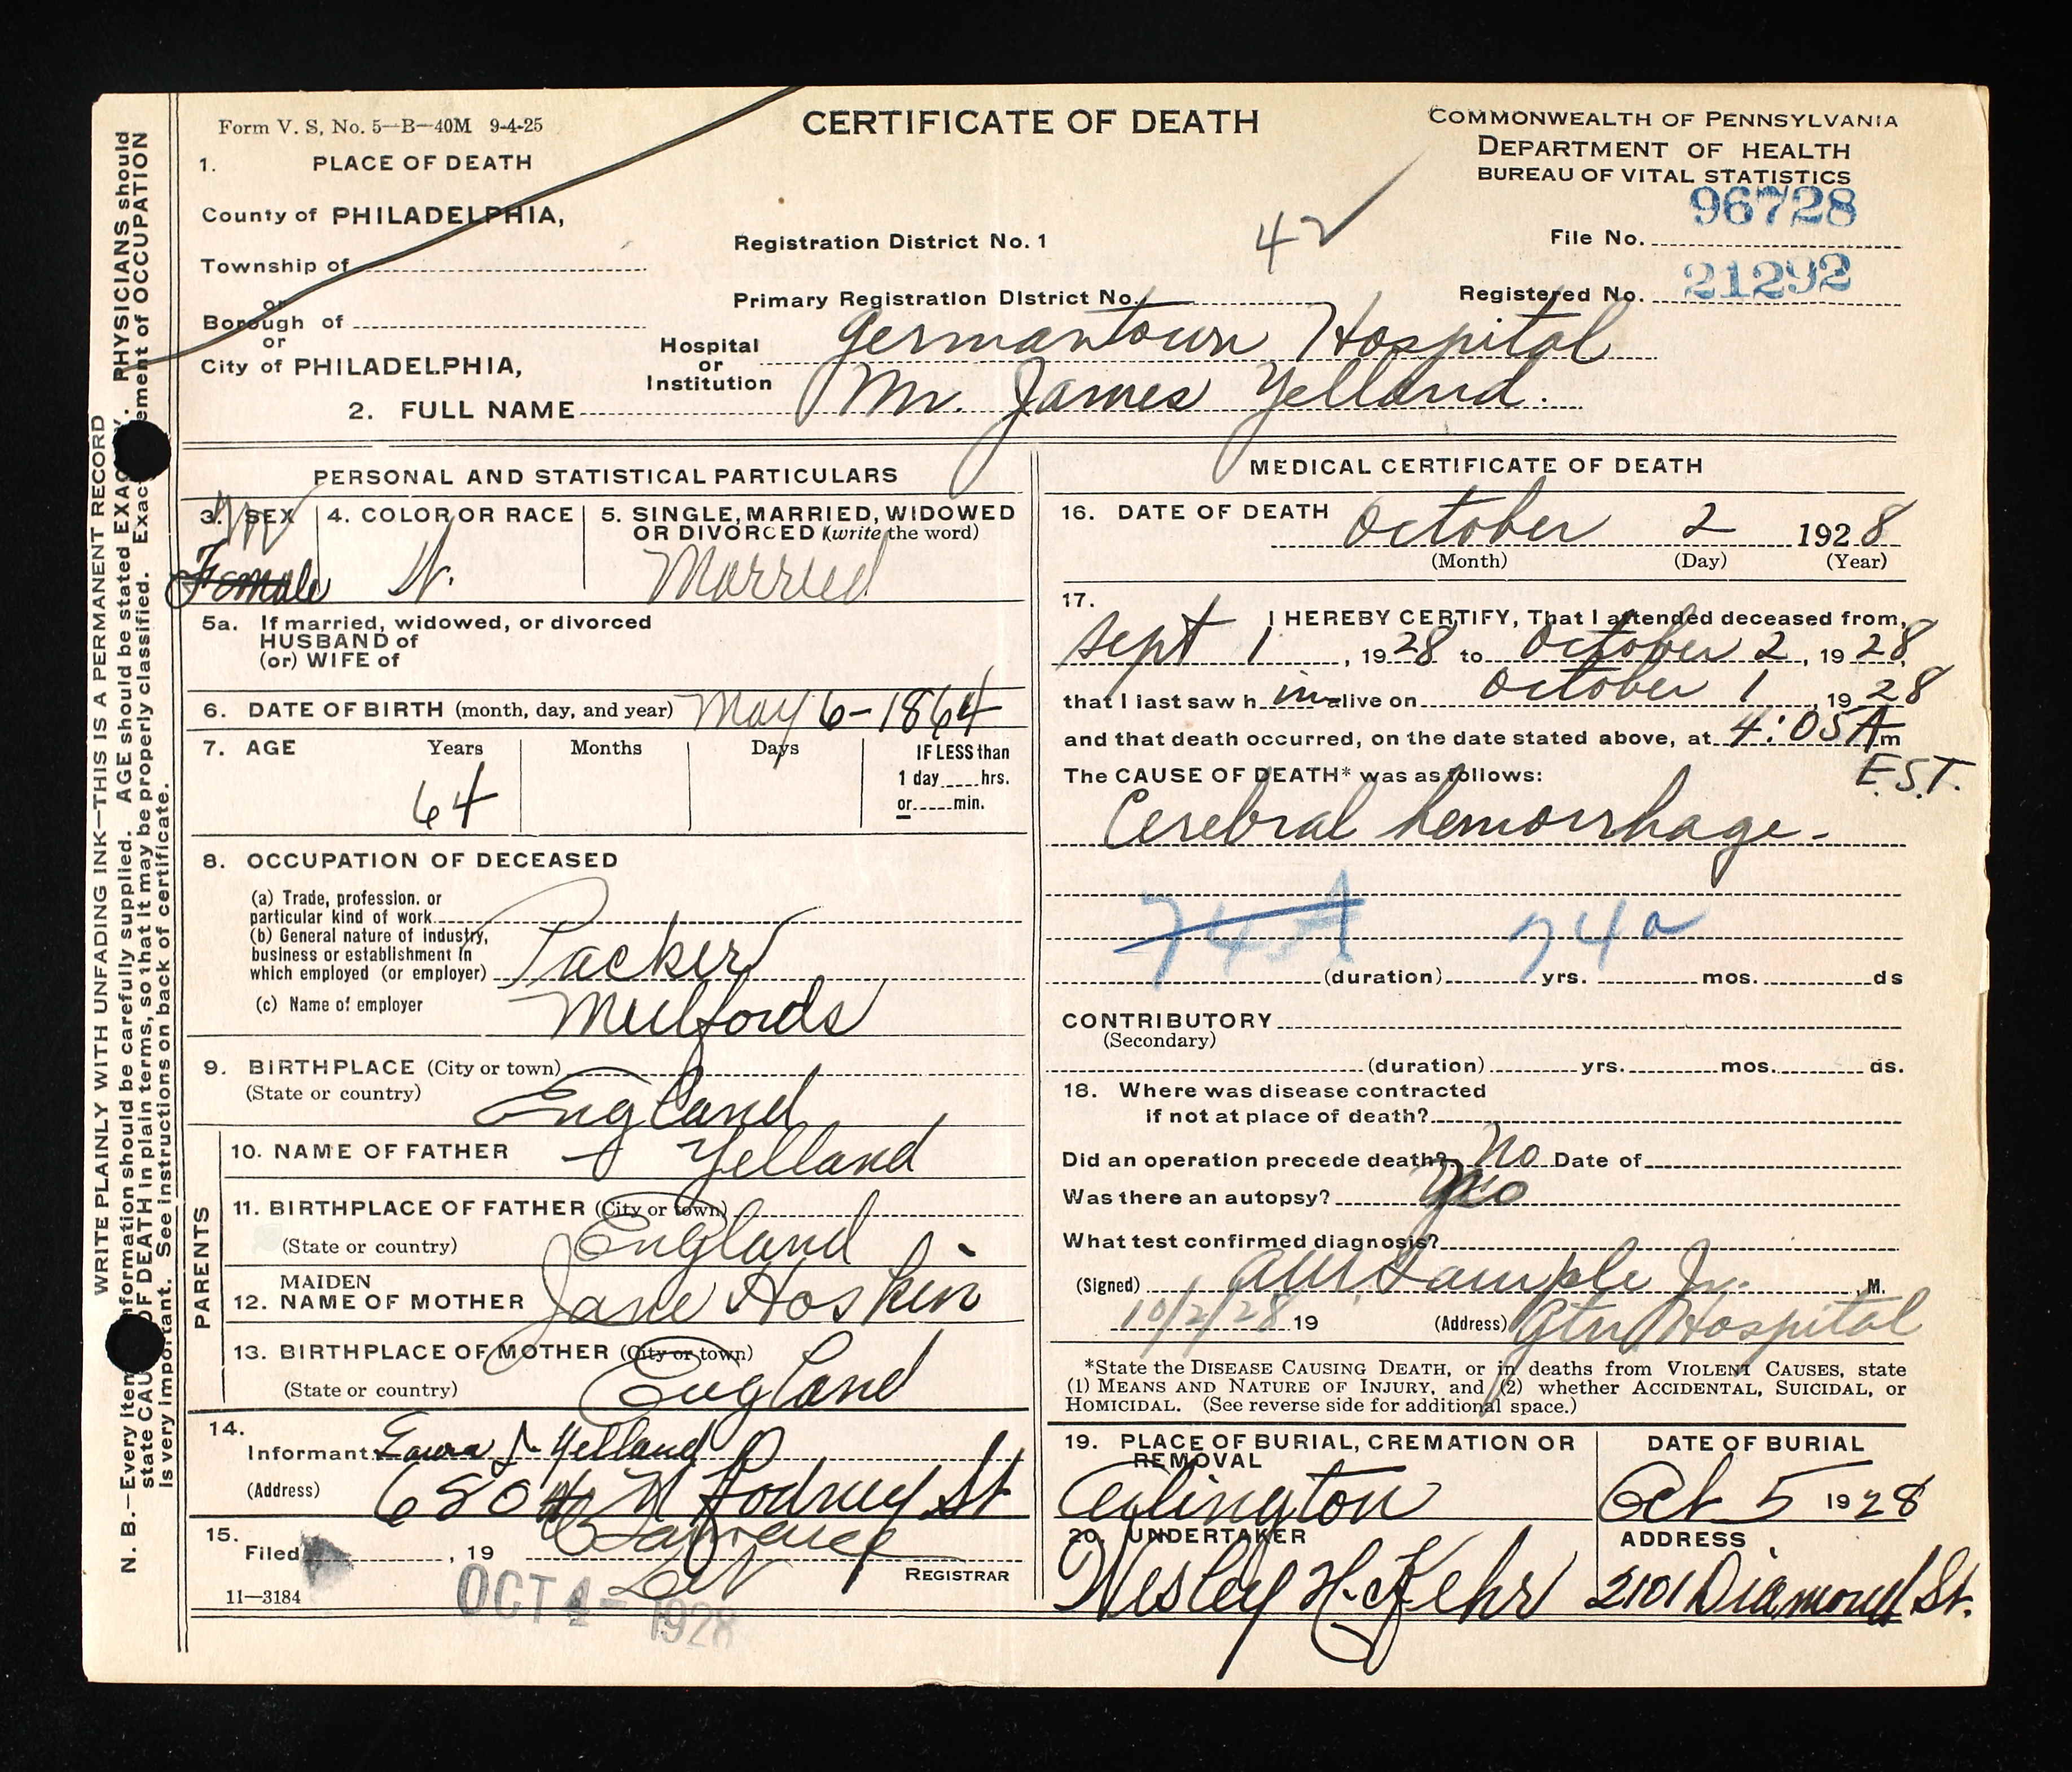 Form V. S. No. 5—B—40M 9-4-25
CERTIFICATE OF DEATH
COMMONWEALTH OF PENNSYLVANIA
DEPARTMENT OF HEALTH
BUREAU OF VITAL STATISTICS
1. PLACE OF DEATH
County of PHILADELPHIA,
Township of
or
Borough of
or
City of PHILADELPHIA,
Registration District No. 1
42
Primary Registration District No.
File No. 96728
Registered No. 21292
Hospital or Institution Germantown Hospital
2. FULL NAME Mr. James Yelland.
PERSONAL AND STATISTICAL PARTICULARS
3. SEX M Female
4. COLOR OR RACE W.
5. SINGLE, MARRIED, WIDOWED
OR DIVORCED (write the word)
Married
5a. If married, widowed, or divorced
HUSBAND of
(or) WIFE of
6. DATE OF BIRTH (month, day, and year) May 6-1864
7. AGE Years Months Days IF LESS than
1 day hrs.
or min.
64
8. OCCUPATION OF DECEASED
(a) Trade, profession, or
particular kind of work
(b) General nature of industry,
business or establishment in
which employed (or employer) Packer
(c) Name of employer Mulfords
9. BIRTHPLACE (City or town)
(State or country) England
PARENTS
10. NAME OF FATHER Yelland
11. BIRTHPLACE OF FATHER (City or town)
(State or country) England
12. MAIDEN NAME OF MOTHER Jane Hoskin
13. BIRTHPLACE OF MOTHER (City or town)
(State or country) England
14.
Informant Laura J. Yelland
(Address) 6804 N Rodney St
15.
Filed , 19
Lawrence
REGISTRAR
OCT 4 - 1928
11—3184
MEDICAL CERTIFICATE OF DEATH
16. DATE OF DEATH October 2 1928
(Month) (Day) (Year)
17. I HEREBY CERTIFY, That I attended deceased from,
Sept 1, 1928 to October 2, 1928,
that I last saw h im alive on October 1, 1928
and that death occurred, on the date stated above, at 4:05 A m
E.S.T.
The CAUSE OF DEATH* was as follows:
Cerebral hemorrhage-
74A 74a
(duration) yrs. mos. ds
CONTRIBUTORY
(Secondary)
(duration) yrs. mos. ds.
18. Where was disease contracted
if not at place of death?
Did an operation precede death? No Date of
Was there an autopsy? No
What test confirmed diagnosis?
(Signed) Sample Jr. , M.
10/2/28 19 (Address) Gtn Hospital
*State the DISEASE CAUSING DEATH, or in deaths from VIOLENT CAUSES, state
(1) MEANS AND NATURE OF INJURY, and (2) whether ACCIDENTAL, SUICIDAL, or
HOMICIDAL. (See reverse side for additional space.)
19. PLACE OF BURIAL, CREMATION OR
REMOVAL
Arlington
DATE OF BURIAL
Oct 5 1928
20. UNDERTAKER
Wesley H. Kehr
ADDRESS
2101 Diamond St.
WRITE PLAINLY WITH UNFADING INK—THIS IS A PERMANENT RECORD
N. B.—Every item information should be carefully supplied. AGE should be stated EXACTLY. PHYSICIANS should
state CAUSE OF DEATH in plain terms, so that it may be properly classified. Exact statement of OCCUPATION
is very important. See instructions on back of certificate.